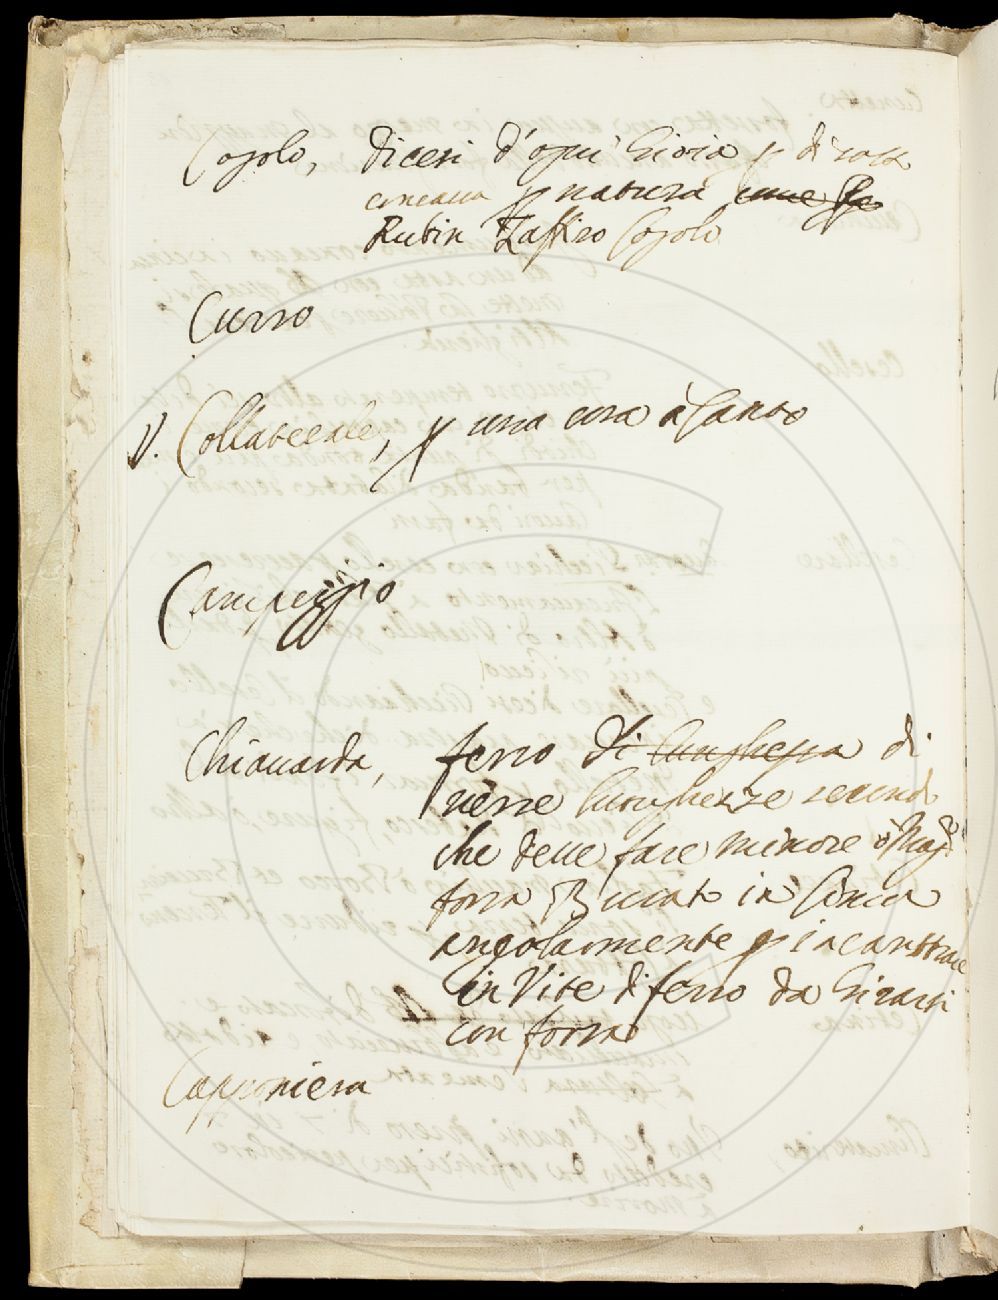 Cogolo, dicesi d'ogni Gioia p di sotto
concaua p natura come
Rubin Zaffiro Cogolo
Curro
V. Collaterale, p una cosa à Canto
Campeggio
Chiauarda, ferro di lunghezza di
uerse lunghezze secondo
che deue fare minore ò Magr
forza Bucato in Cima
angolarmente p incastrare
in Vite di ferro da Girarsi
con forza
Capponiera